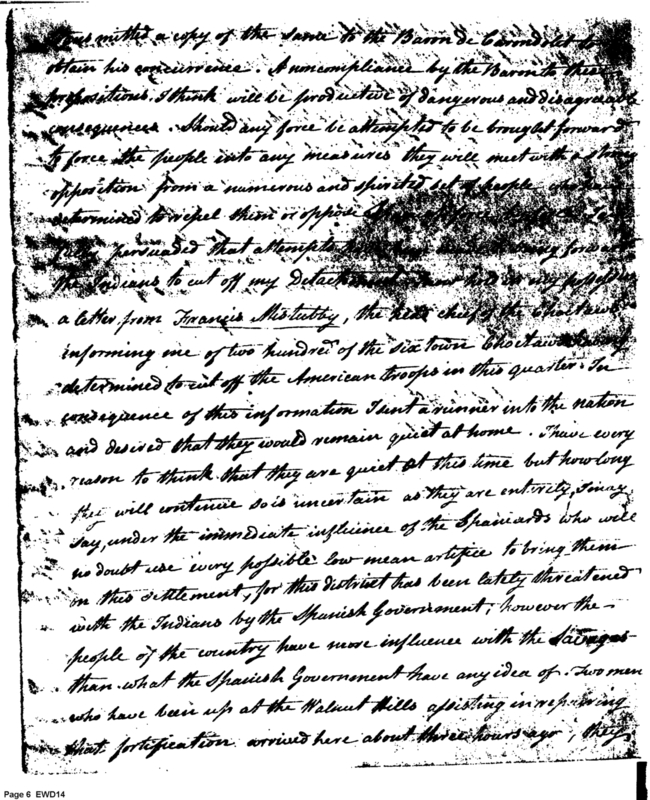 transmitted a copy of the same to the Baron de Carondolet to
obtain his concurrence. A noncompliance by the Baron to these
propositions, I think will be productive of dangerous and disagreeable
consequences. Should any force be attempted to be brought forward
to force the people into any measures they will meet with a strong
opposition from a numerous and spirited set of people who have
determined to repel them or oppose
persuaded that attempts forward
the Indians to cut off my Detachment hold in my possession
a letter from Francis Mistubby, the head chief of the Choctaws
informing me of two hundred of the six town Choctaws
determined to cut off the American troops in this quarter. In
consequence of this information I sent a runner into the nation
and desired that they would remain quiet at home. I have every
reason to think that they are quiet at this time but how long
they will continue so is uncertain as they are entirely, I may
say, under the immediate influence of the Spaniards who will
no doubt use every possible low mean artifice to bring them
on this settlement, for this district has been lately threatened
with the Indians by the Spanish Government; however the
people of the country have more influence with the Savages
than what the Spanish Government have any idea of. Two men
who have been up at the Walnut Hills assisting in repairing
that fortification arrived here about three hours ago; they
Page 6 EWD14